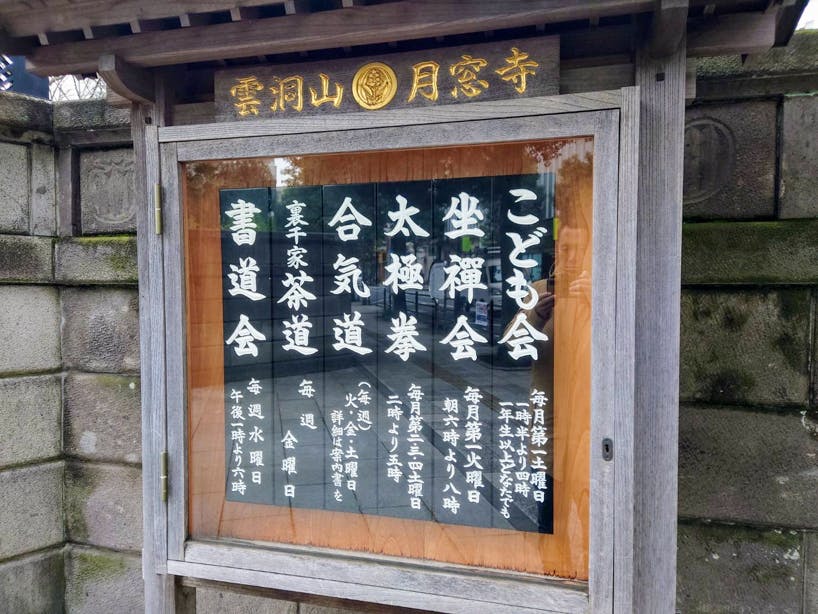 雲洞山 月窓寺
こども会
毎月第一土曜日
一時半より四時
一年生以上どなたでも
坐禪会
毎月第一火曜日
朝六時より八時
太極拳
毎月第二・三・四土曜日
二時より五時
合気道
(毎週)
火・金・土曜日
詳細は案内書を
裏千家茶道
毎週 金曜日
書道会
毎週水曜日
午後一時より六時